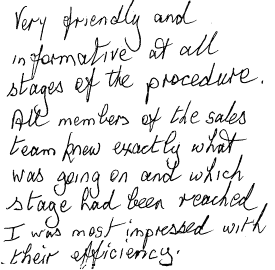 Very friendly and
informative at all
stages of the procedure.
All members of the sales
team knew exactly what
was going on and which
stage had been reached
I was most impressed with
their efficiency.